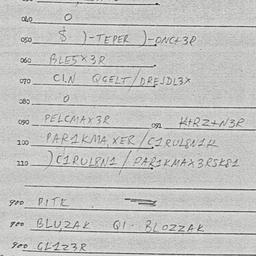 040 0
050 $ )-TEPER )-DNC+3R
060 BLE5X3R
070 CLN QGELT/DRESDL3X
080 0
090 PELCMAX3R 091 K+RZ+N3R
100 PAR1KMAXER/C1RUL8N1K
110 )C1RUL8N1/PAR1KMAX3RSK81
900 PITK
900 BLUZAK Q1-BLOZZAK
900 GL1Z3R